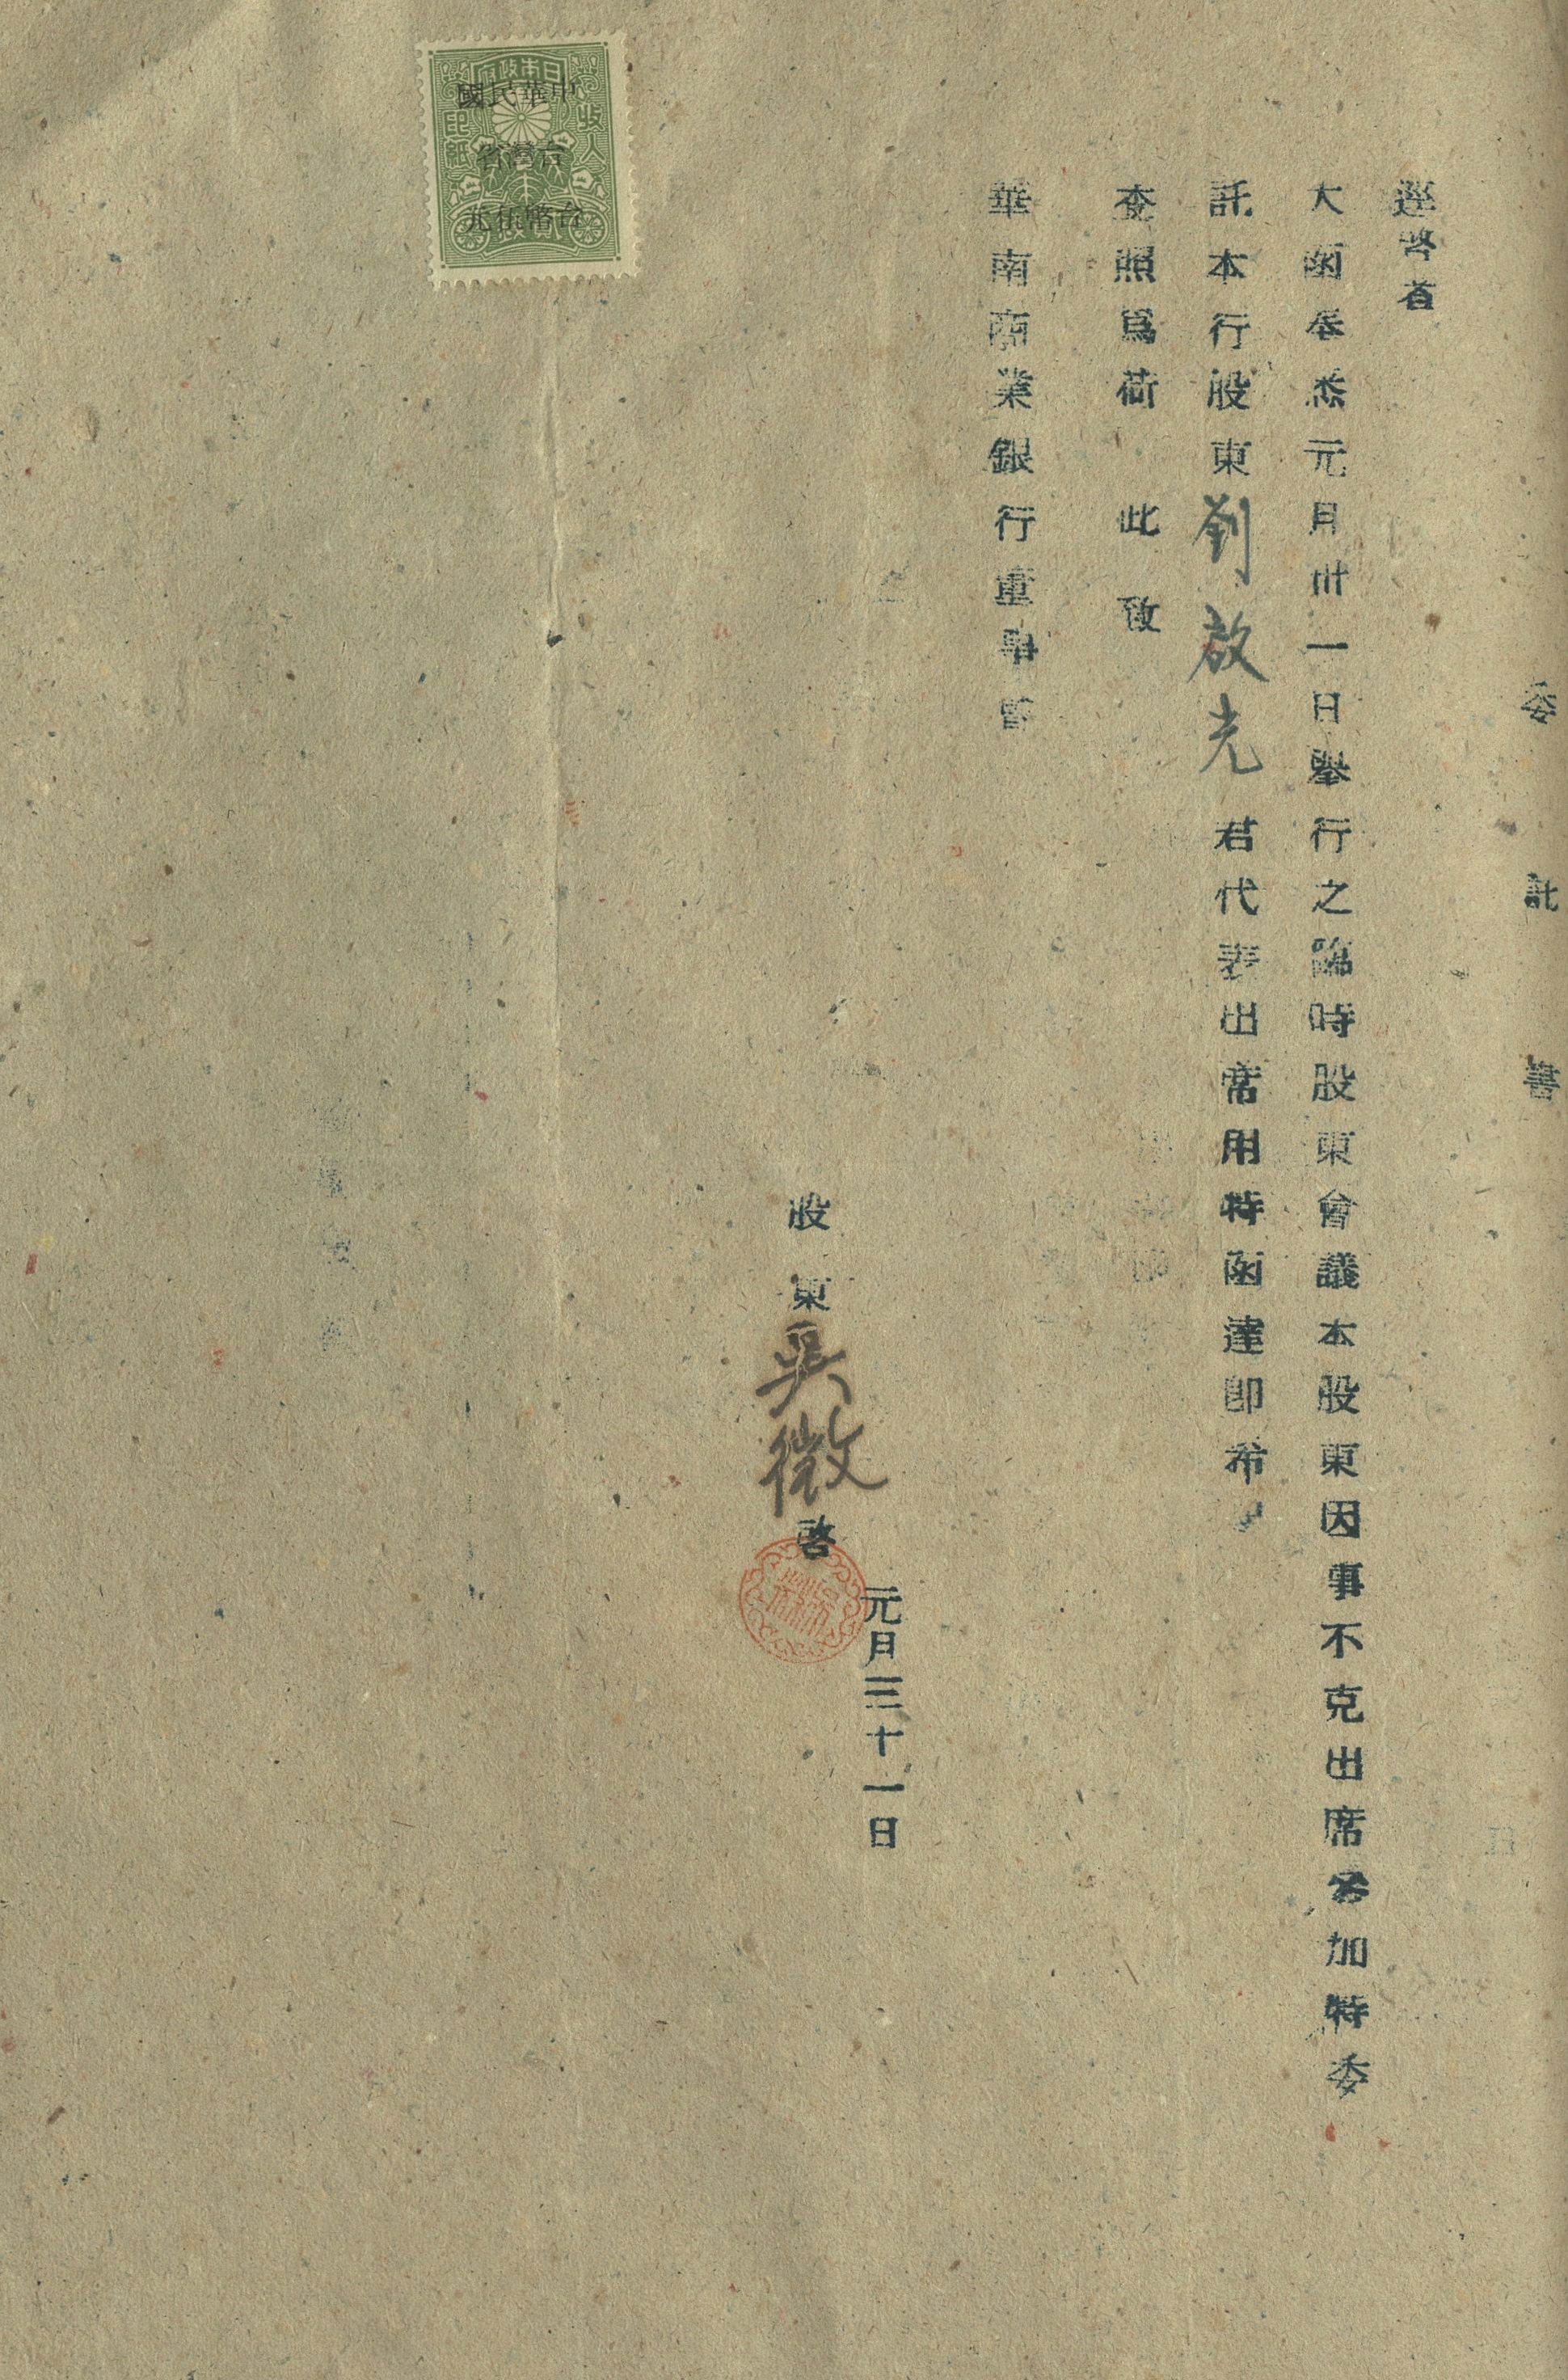 委託書
逕啓者
大函奉悉元月卅一日舉行之臨時股東會議本股東因事不克出席參加特委
託本行股東劉啟光君代表出席用特函達即希
查照爲荷 此致
華南商業銀行董事會
元月三十一日
股東吳微啓
日本政府
收入
印紙
中華民國
台灣省
台幣伍元